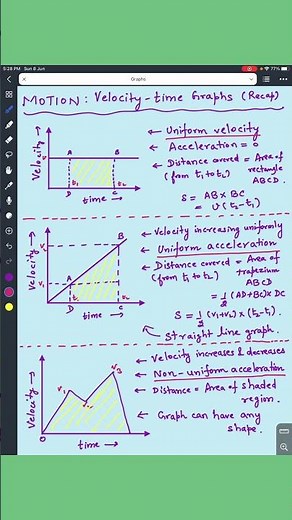 5:28 PM Sun 8 Jun
77%
Graphs
MOTION: Velocity-time Graphs (Recap)
Velocity →
v
A
B
t₁
t₂
D
C
time →
← Uniform velocity
← Acceleration = 0
← Distance covered = Area of
(from t₁ to t₂) rectangle
ABCD.
S = AB × BC
= v(t₂-t₁)
Velocity →
v₂
v₁
A
B
t₁
t₂
D
C
time →
← Velocity increasing uniformly
← Uniform acceleration
← Distance covered = Area of
(from t₁ to t₂) trapezium
ABCD
= 1/2 (AD+BC) × DC
S = 1/2 (v₁+v₂) × (t₂-t₁)
Straight line graph.
Velocity →
v₁
v₂
v₃
O
time →
← Velocity increases & decreases
← Non-uniform acceleration
← Distance = Area of shaded
region.
← Graph can have any
shape.